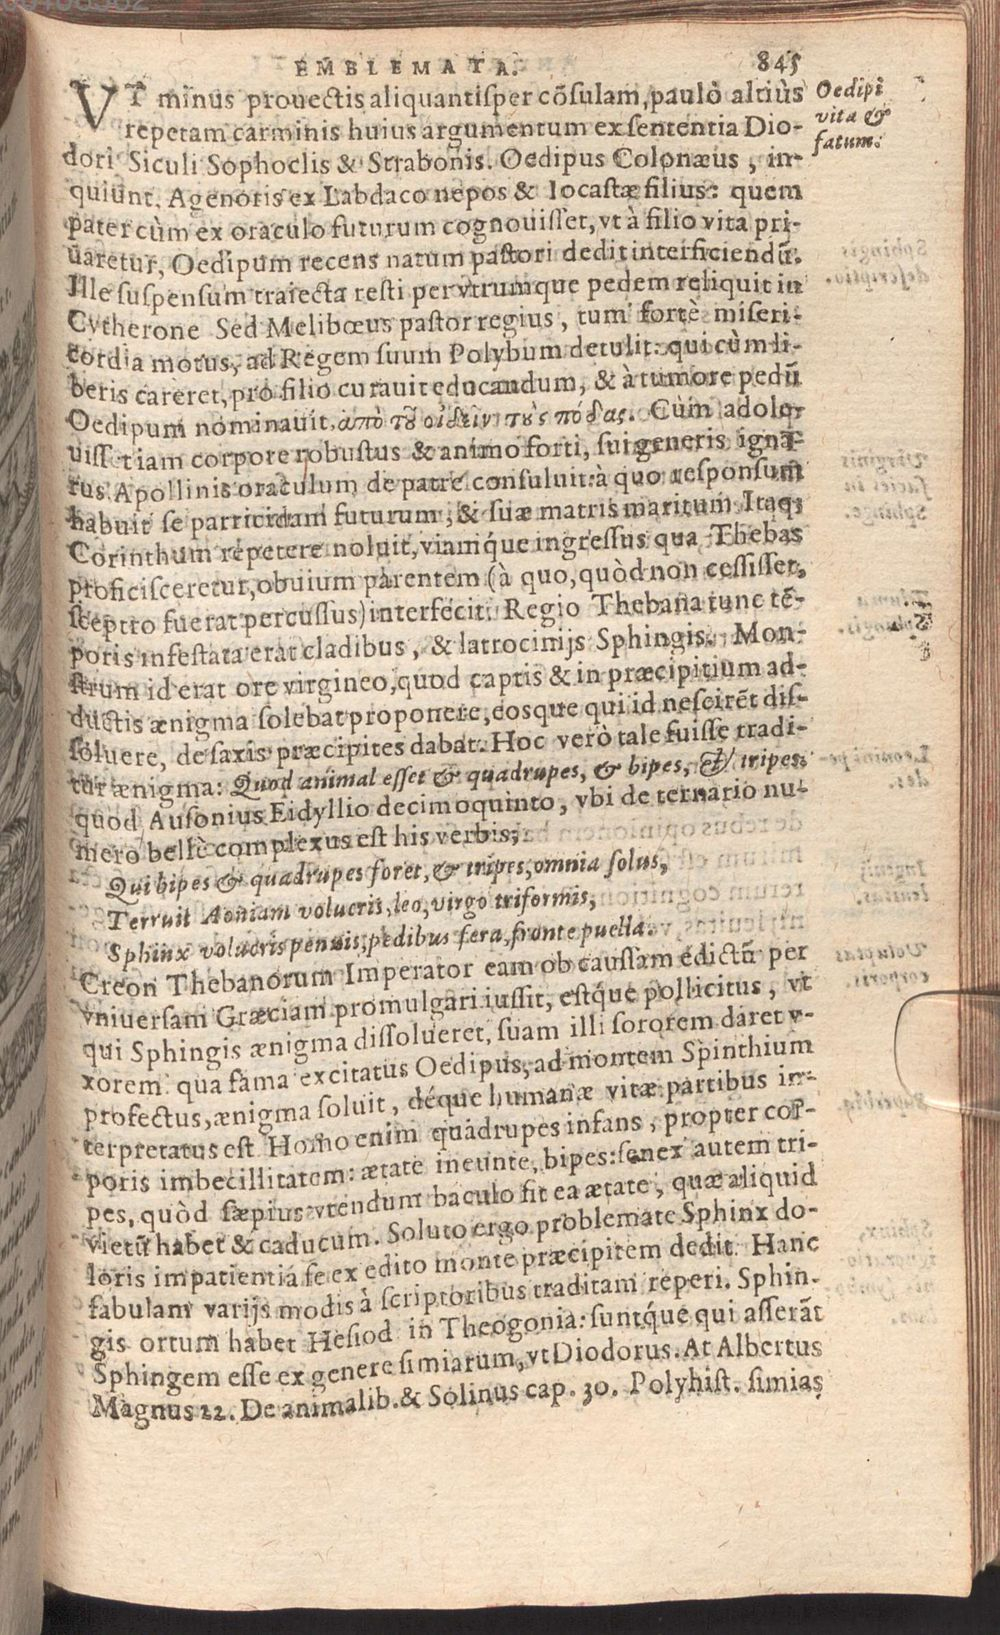 EMBLEMATA. 845
VT minus prouectis aliquantisper cõsulam, paulò altiùs
repetam carminis huius argumentum ex sententia Dio-
dori Siculi Sophoclis & Strabonis. Oedipus Colonæus, in-
quiunt, Agenoris ex Labdaco nepos & Iocastæ filius: quem
pater cùm ex oraculo futurum cognouisset, vt à filio vita pri-
uaretur, Oedipum recens natum pastori dedit interficiendũ.
Ille suspensum traiecta resti per vtrumque pedem reliquit in
Cytherone Sed Melibœus pastor regius, tum fortè miseri-
cordia motus, ad Regem suum Polybum detulit: qui cùm li-
beris careret, pro filio curauit educandum, & à tumore pedũ
Oedipum nominauit, ἀπὸ τοῦ οἰδεῖν τοὺς πόδας. Cùm adole-
uisset iam corpore robustus & animo forti, sui generis igna-
rus Apollinis oraculum de patre consuluit: à quo responsum
habuit se parricidam futurum, & suæ matris maritum Itaq;
Corinthum repetere noluit, viamq́ue ingressus qua Thebas
proficisceretur, obuium parentem (à quo, quòd non cessisset,
sceptro fuerat percussus) interfecit. Regio Thebana tunc tẽ-
poris infestata erat cladibus, & latrocinijs Sphingis. Mon-
strum id erat ore virgineo, quod captis & in præcipitium ad-
ductis ænigma solebat proponere, eosque qui id nescirẽt dis-
soluere, de saxis præcipites dabat. Hoc verò tale fuisse tradi-
tur ænigma: Quod animal esset & quadrupes, & bipes, & tripes:
quod Ausonius Eidyllio decimoquinto, vbi de ternario nu-
mero bellè complexus est his verbis;
Qui bipes & quadrupes foret, & tripes, omnia solus,
Terruit Aoniam volucris, leo, virgo triformis,
Sphinx volucris pennis, pedibus fera, fronte puella.
Creon Thebanorum Imperator eam ob caussam edictũ per
vniuersam Græciam promulgari iussit, estq́ue pollicitus, vt
qui Sphingis ænigma dissolueret, suam illi sororem daret v-
xorem: qua fama excitatus Oedipus, ad montem Spinthium
profectus, ænigma soluit, déque humanæ vitæ partibus in-
terpretatus est Homo enim quadrupes infans, propter cor-
poris imbecillitatem: ætate ineunte, bipes: senex autem tri-
pes, quòd sæpius vtendum baculo sit ea ætate, quæ aliquid
vietũ habet & caducum. Soluto ergo problemate Sphinx do-
loris impatientiá se ex edito monte præcipitem dedit. Hanc
fabulam varijs modis à scriptoribus traditam reperi. Sphin-
gis ortum habet Hesiod in Theogonia: suntq́ue qui asserãt
Sphingem esse ex genere simiarum, vt Diodorus. At Albertus
Magnus 22. De animalib. & Solinus cap. 30. Polyhist. simias
Oedipi
vita &
fatum.